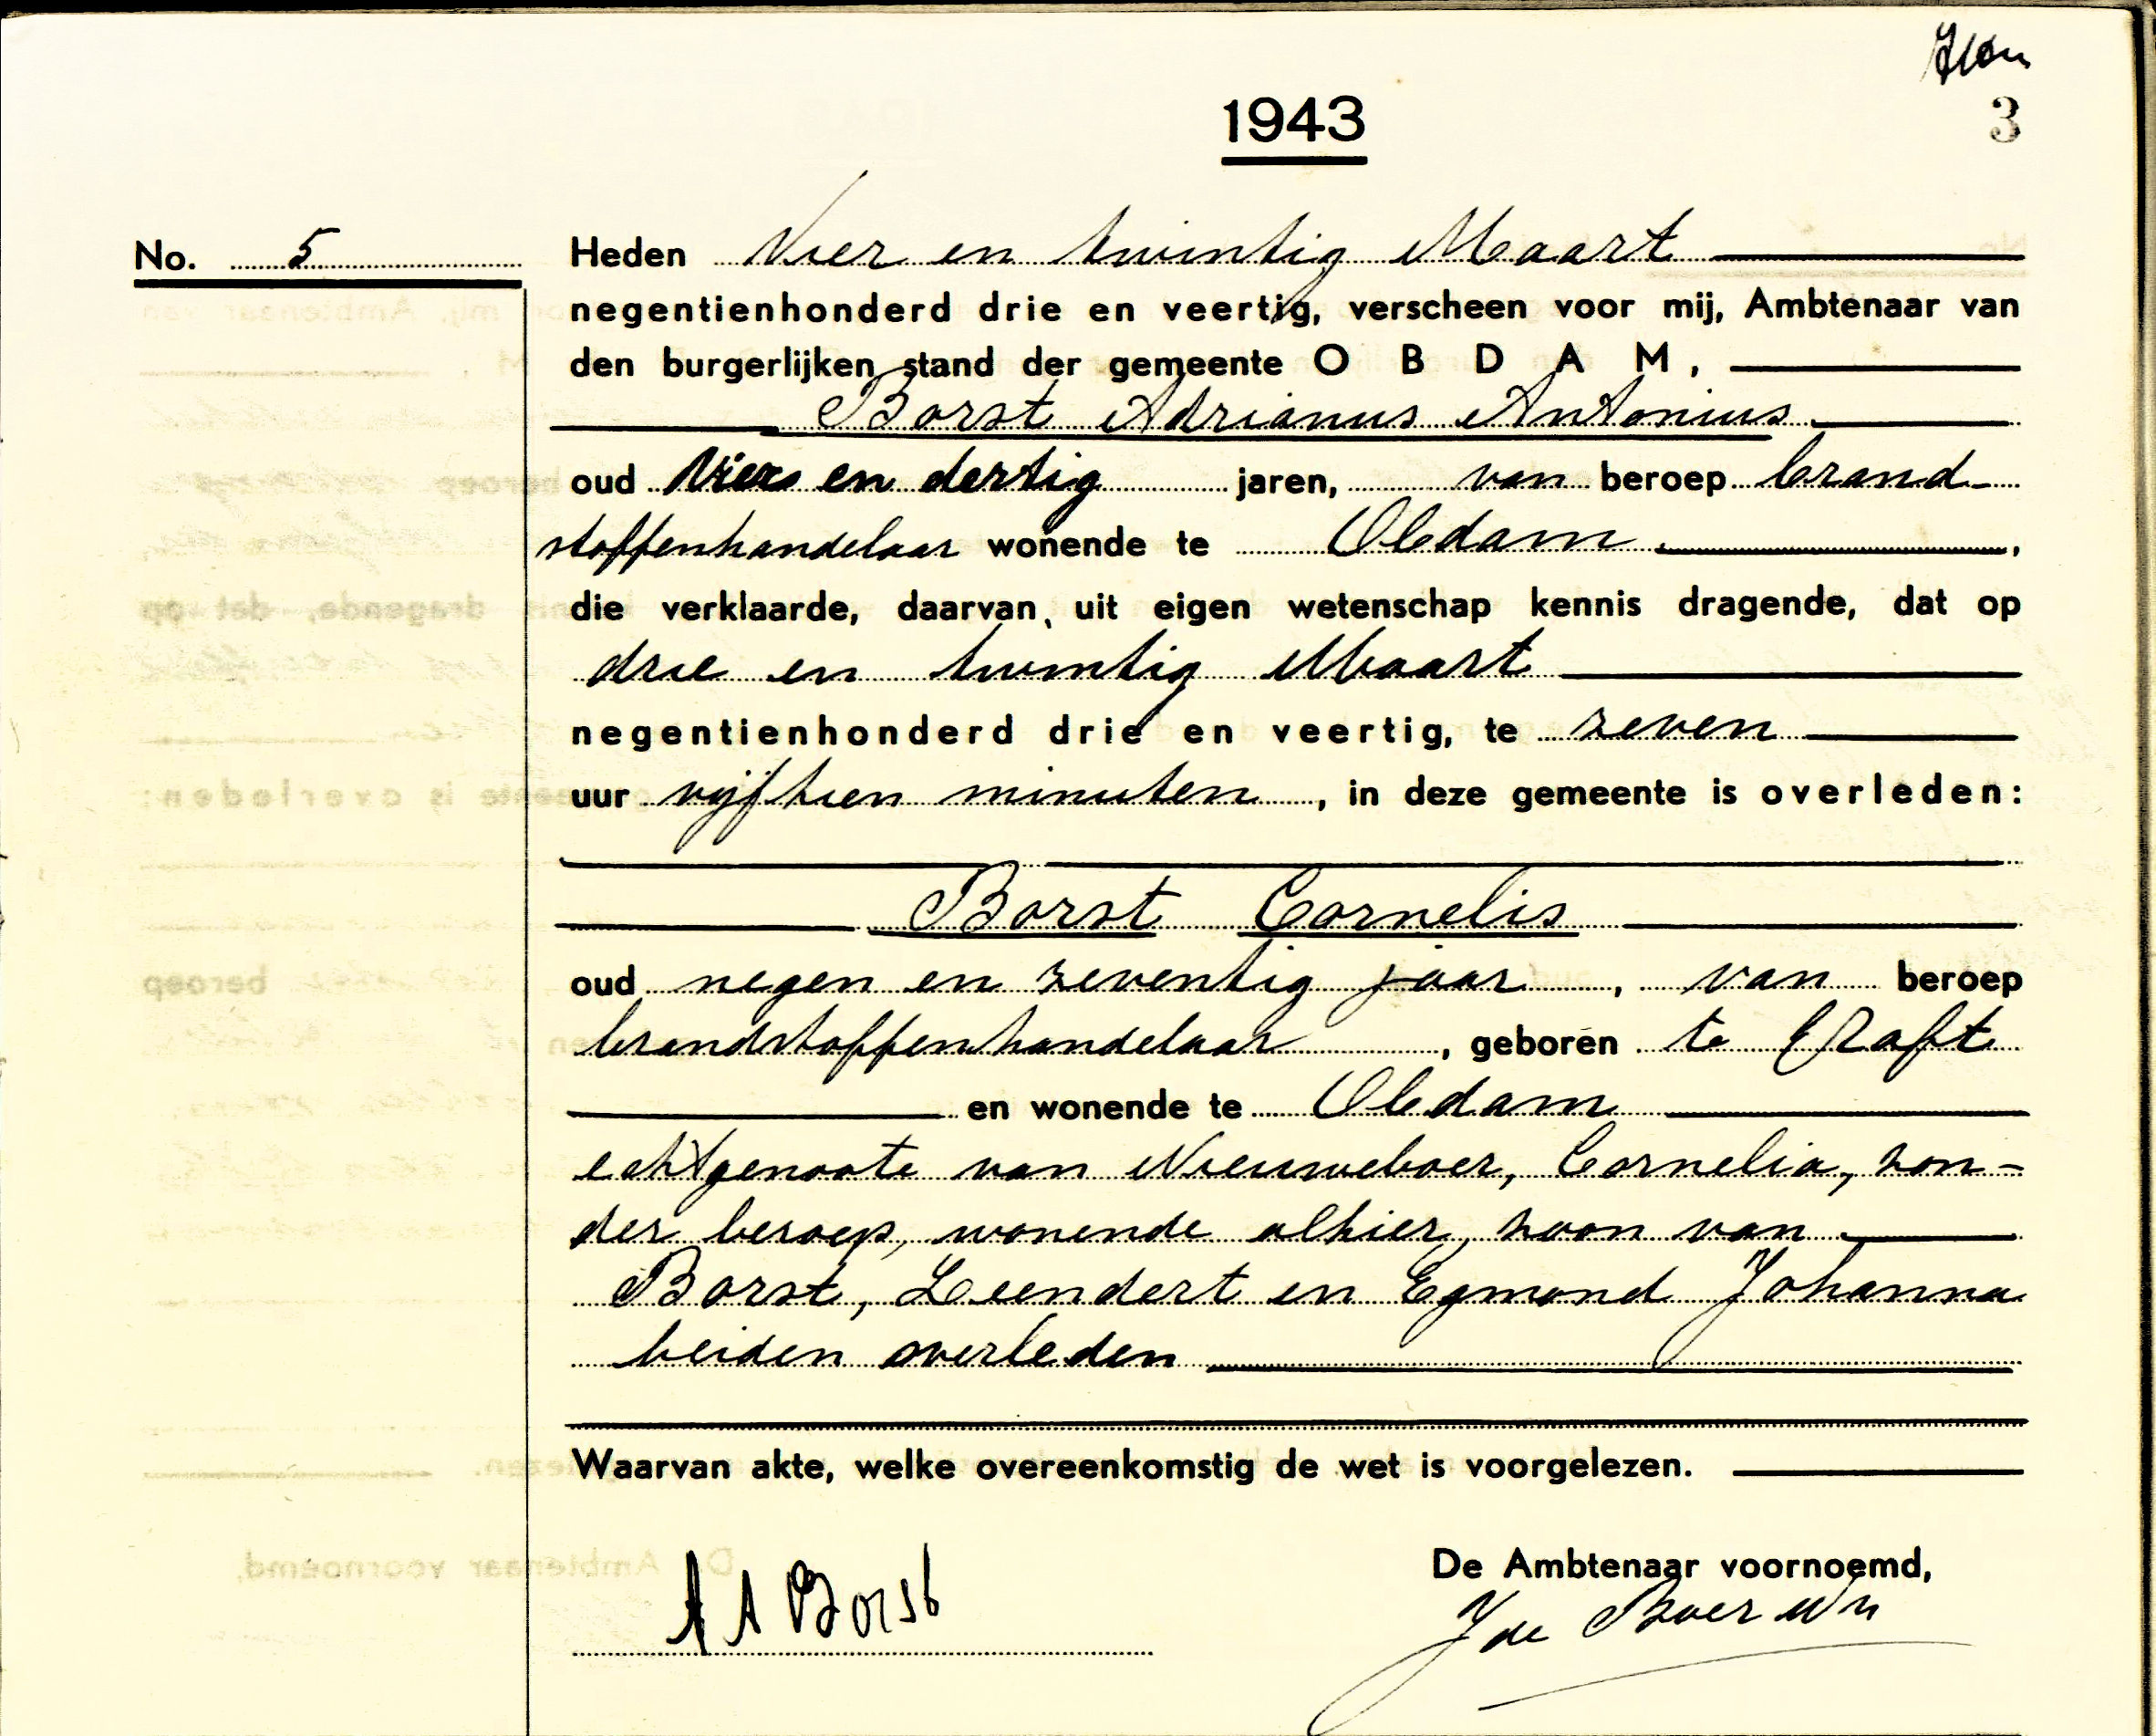 1943
3
No. 5
Heden Vier en twintig Maart
negentienhonderd drie en veertig, verscheen voor mij, Ambtenaar van
den burgerlijken stand der gemeente O B D A M ,
Borst Adrianus Antonius
oud Vier en dertig jaren, van beroep brand-
stoffenhandelaar wonende te Obdam ,
die verklaarde, daarvan uit eigen wetenschap kennis dragende, dat op
drie en twintig Maart
negentienhonderd drie en veertig, te zeven
uur vijftien minuten , in deze gemeente is overleden:
Borst Cornelis
oud negen en zeventig jaar , van beroep
brandstoffenhandelaar , geboren te Graft
en wonende te Obdam
echtgenoote van Nieuweboer, Cornelia, zon-
der beroep, wonende alhier, zoon van
Borst, Leendert en Egmond Johanna
beiden overleden
Waarvan akte, welke overeenkomstig de wet is voorgelezen.
De Ambtenaar voornoemd,
A A Borst
J de Boer